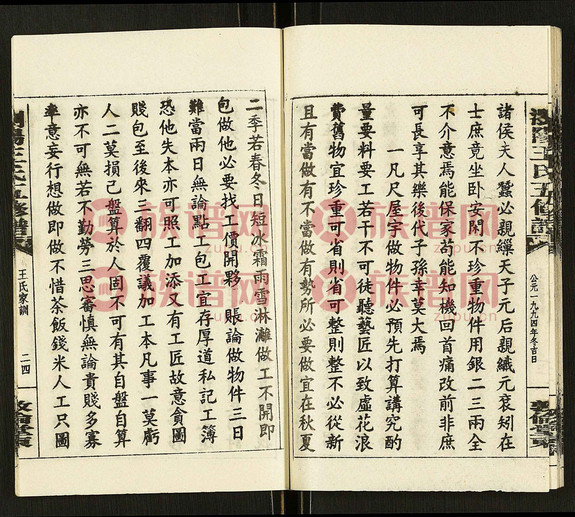 瀏陽王氏五修譜
公元一九九四年冬吉日
敦倫堂
諸侯夫人蠶必親繅天子元后親織元衮矧在
士庶竟坐卧安閑不珍重物件用銀二三兩全
不介意焉能保家苟能知機回首痛改前非庶
可長享其樂後代子孫幸莫大焉
一凡尺屋宇做物件必預先打算講究酌
量要料要工若干不可徒聽藝匠以致虛花浪
費舊物宜珍重可省則省可整則整不必從新
且有當做有不當做有勢所必要做宜在秋夏
二季若春冬日短冰霜雨雪淋漓做工不開即
包做他必要找工價開夥賬論做物件三日
難當兩日無論點工包工宜存厚道私記工簿
恐他失本亦可照工加添又有工匠故意貪圖
賤包至後來三翻四覆議加工本凡事一莫虧
人二莫損己盤算於人固不可有其自盤自算
亦不可無若不勤勞三思審慎無論貴賤多寡
率意妄行想做即做不惜茶飯錢米人工只圖
王氏家訓
二四
瀏陽王氏五修譜
敦倫堂